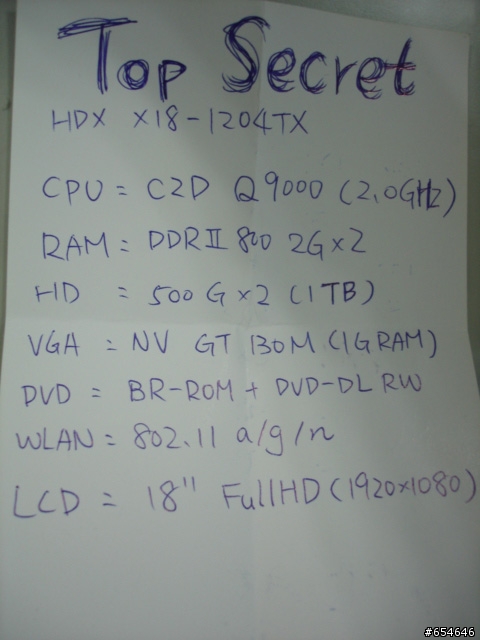 Top Secret
HDX X18-1204TX
CPU = C2D Q9000 (2.0GHz)
RAM = DDRII 800 2G×2
HD = 500 G×2 (1TB)
VGA = NV GT 130M (1G RAM)
DVD = BR-ROM + DVD-DL RW
WLAN = 802.11 a/g/n
LCD = 18" FullHD (1920×1080)
#654646